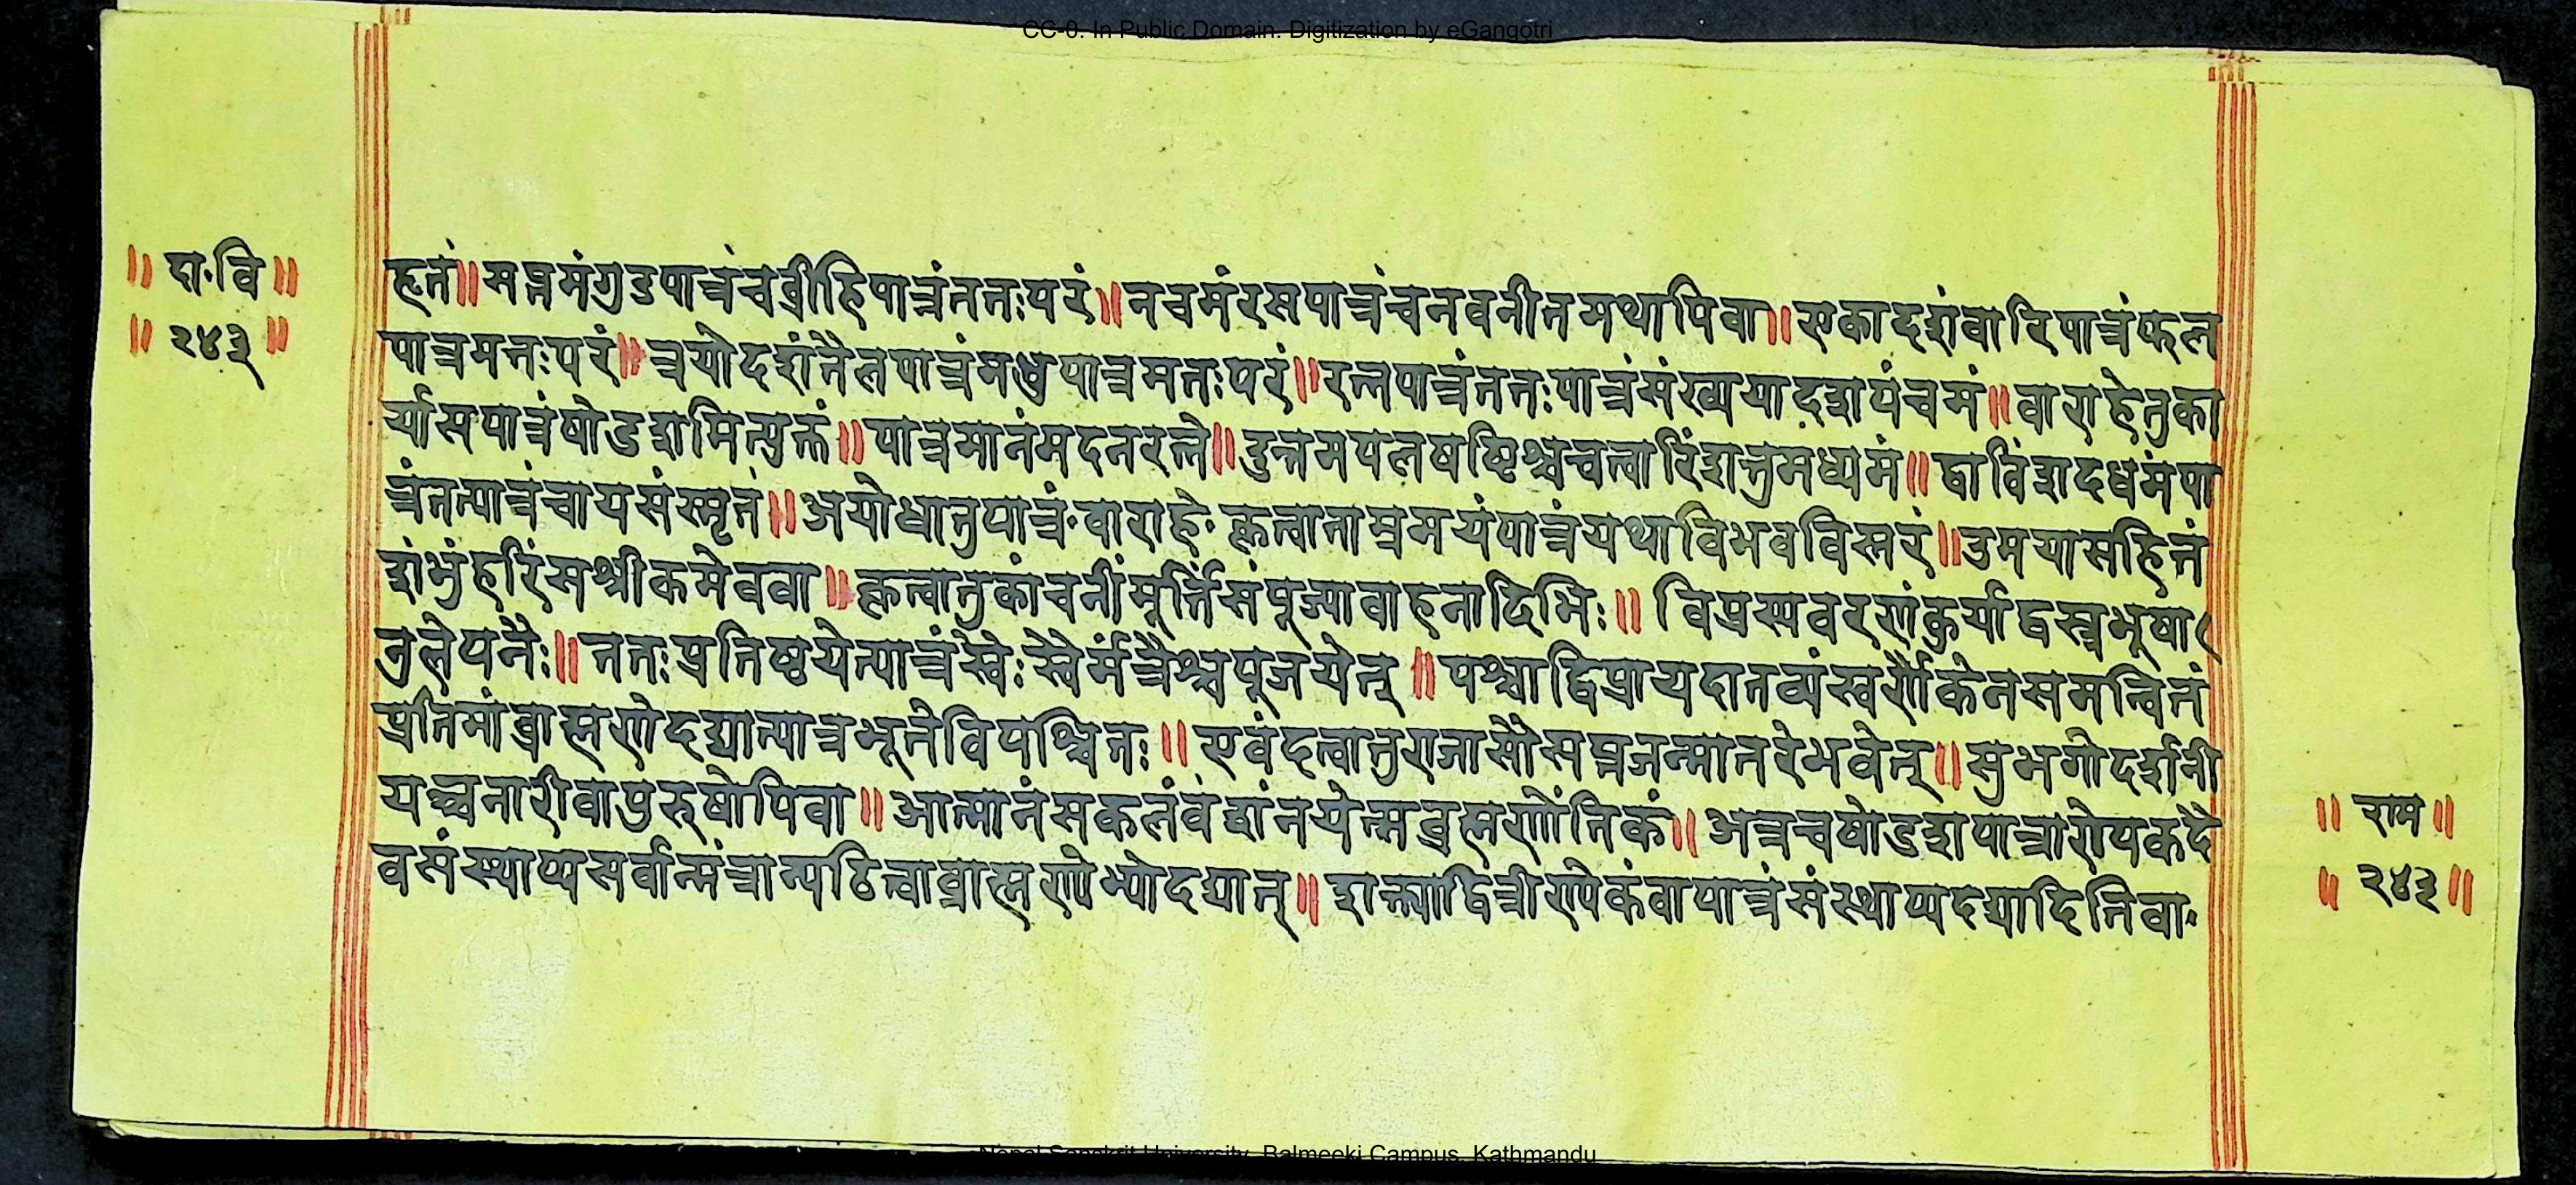 CC-0. In Public Domain. Digitization by eGangotri
॥ दा॰वि ॥
॥ २४३ ॥
हृतं॥सप्तमंगुडपात्रंचव्रीहिपात्रंततःपरं॥नवमंरसपात्रंचनवनीतमथापिवा॥एकादशंवारिपात्रंफल
पात्रमतःपरं॥त्रयोदशंतैलपात्रंमधुपात्रमतःपरं॥रत्नपात्रंततःपात्रंसंख्ययादशपंचमं॥वाराहेतुका
र्यासपात्रंषोडशमित्युक्तं॥पात्रमानंमदनरत्ने॥उत्तमपलषष्टिश्चचत्वारिंशत्तुमध्यमं॥द्वाविंशदधमंपा
त्रंतत्पात्रंचायसंस्मृतं॥अयोधातुपात्रं॰वाराहे॰कृत्वाताम्रमयंपात्रंयथाविभवविस्तरं॥उमयासहितं
शंभुंहरिंसश्रीकमेववा॥कृत्वातुकांचनींमूर्त्तिंसंपूज्यावाहनादिभिः॥विप्रस्यवरणंकुर्याद्वस्त्रभूषा
नुलेपनैः॥ततःप्रतिष्ठयेत्पात्रंस्वेःस्वैर्मंत्रैश्चपूजयेत्॥पश्चाद्विप्रायदातव्यंस्वर्णैकेनसमन्वितं
प्रतिमांब्राह्मणेदद्यात्पात्रभूतेविपश्चितः॥एवंदत्वातुराजासौसप्तजन्मातरेभवेत्॥सुभगोदर्शनी
यश्चनारीवापुरुषोपिवा॥आत्मानंसकलंवंशंनयेत्सब्रह्मणोंतिकं॥अत्रचषोडशपात्रारोयकदै
वसंस्थाप्यसर्वान्मंत्रान्पठित्वाब्राह्मणेभ्योदद्यात्॥शक्त्याद्वित्रीण्येकंवापात्रंसंस्थाप्यदद्यादितिवा॰
॥ राम ॥
॥ २४३ ॥
Nepal Sanskrit University, Balmeeki Campus, Kathmandu